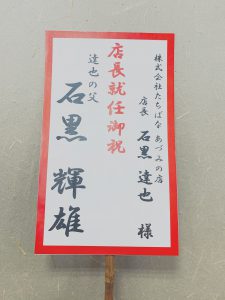 株式会社たちばな あづみの店
店長 石黒 達也 様
店長就任御祝
達也の父
石黒 輝雄